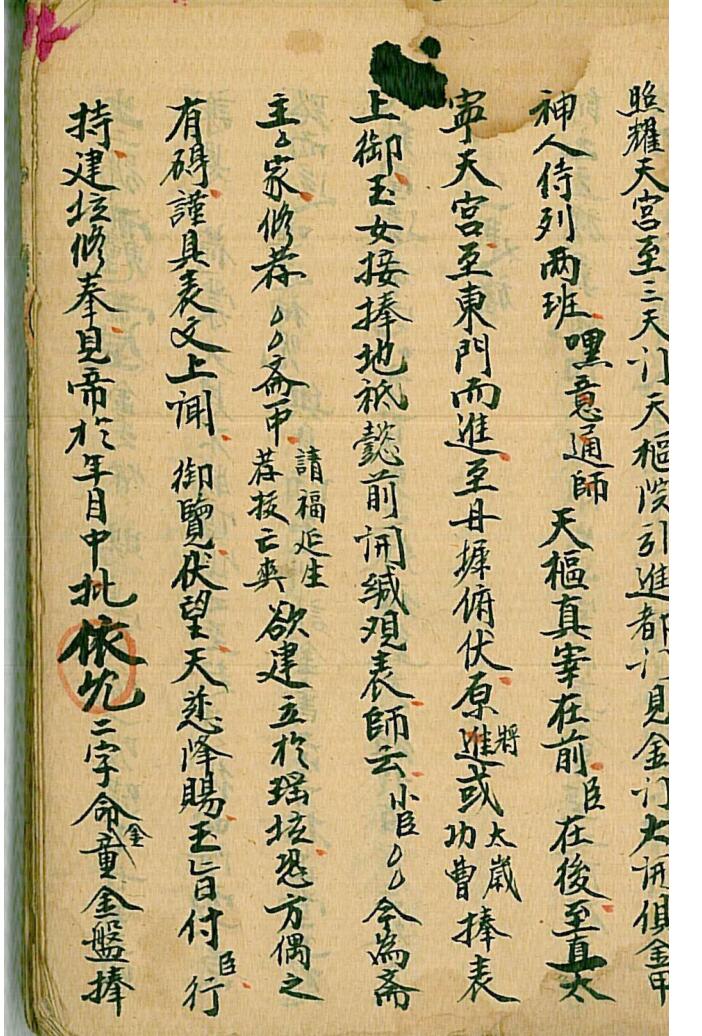 照耀天宮至三天门天樞院引進都门見金门大開傎金甲
神人侍列兩班嘿意通師天樞真宰在前臣在後至直太
寧天宮至東門而進至丹墀俯伏原將進或太歲功曹捧表
上御玉女接捧地袛懿前開緘观表師云小臣〻〻今為斎
主〻家修荐〻〻斎甲請福延生荐拔亡爽欲建立於瑶坛恐方偶之
有碍謹具表文上谢御覽伏望天慈降賜玉旨付臣行
持建坛修奉見帝於年月中批依允二字命金童金盤捧